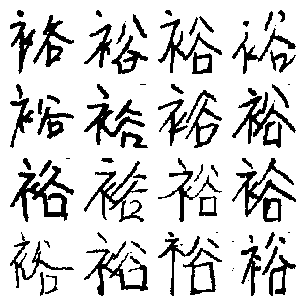 裕裕裕裕
裕裕裕裕
裕裕裕裕
裕裕裕裕